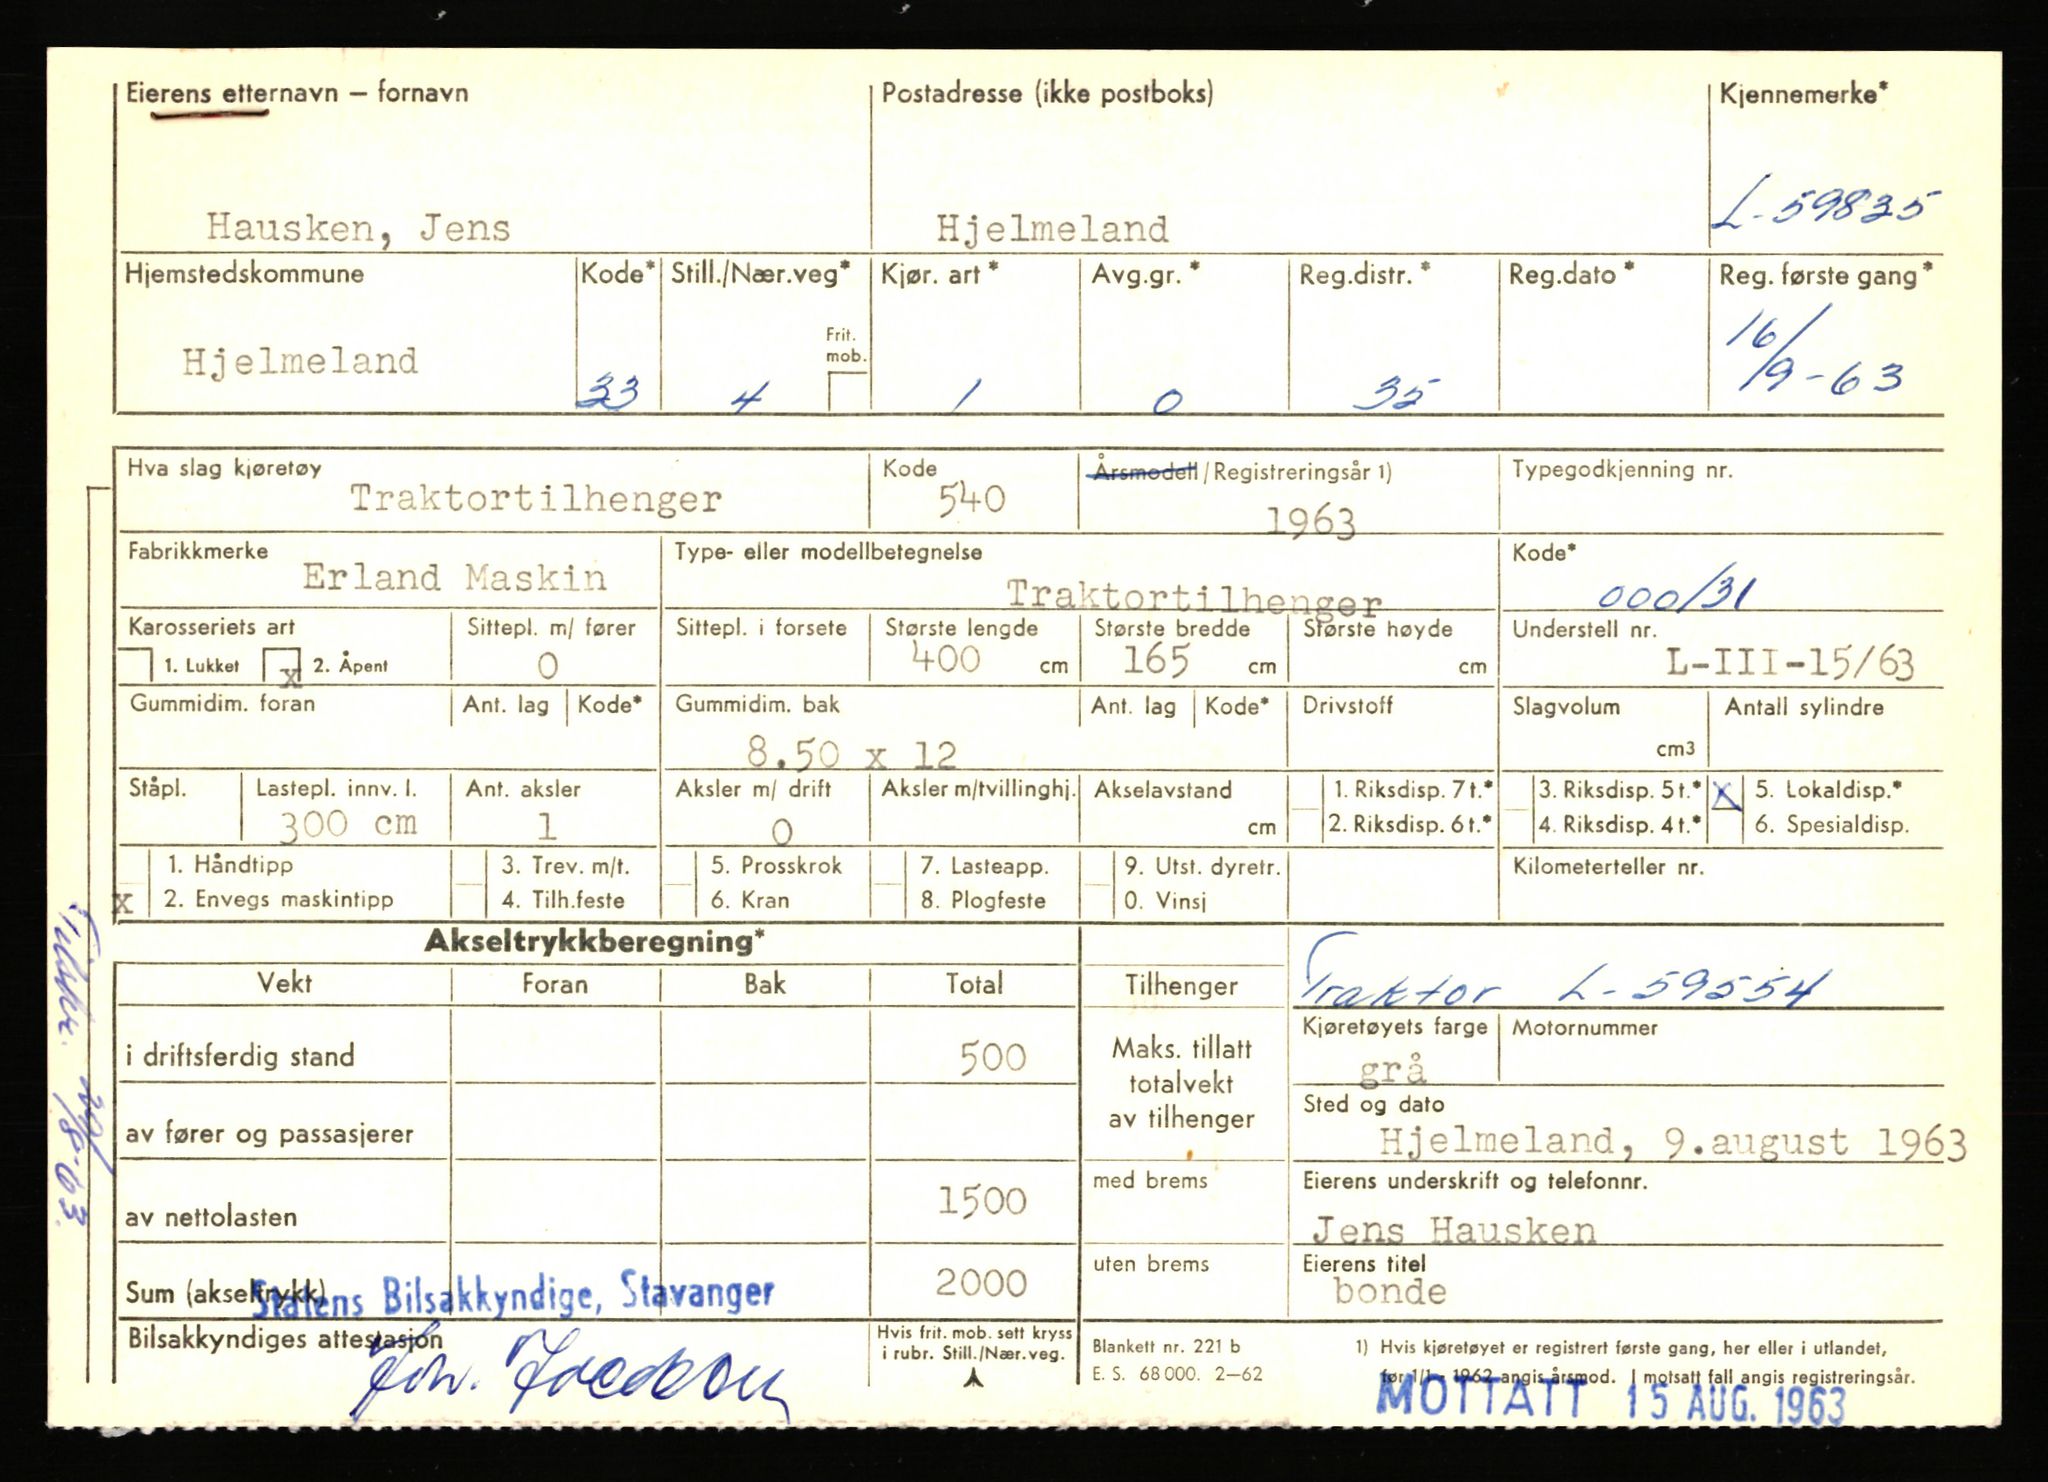 Eierens etternavn — fornavn Postadresse (ikke postboks) Kjennemerke*
Hausken, Jens Hjelmeland L-59835
Hjemstedskommune Kode* Still./Nær.veg* Kjør. art* Avg.gr.* Reg.distr.* Reg.dato* Reg. første gang*
Frit. mob.
Hjelmeland 33 4 1 0 35 16/9-63
Hva slag kjøretøy Kode Årsmodell/Registreringsår 1) Typegodkjenning nr.
Traktortilhenger 540 1963
Fabrikkmerke Type- eller modellbetegnelse Kode*
Erland Maskin Traktortilhenger 000/31
Karosseriets art Sittepl. m/ fører Sittepl. i forsete Største lengde Største bredde Største høyde Understell nr.
1. Lukket x 2. Åpent 0 400 cm 165 cm cm L-III-15/63
Gummidim. foran Ant. lag Kode* Gummidim. bak Ant. lag Kode* Drivstoff Slagvolum Antall sylindre
8.50 x 12 cm3
Ståpl. Lastepl. innv. l. Ant. aksler Aksler m/ drift Aksler m/tvillinghj. Akselavstand 1. Riksdisp. 7 t.* 3. Riksdisp. 5 t.* X 5. Lokaldisp.*
300 cm 1 0 cm 2. Riksdisp. 6 t.* 4. Riksdisp. 4 t.* 6. Spesialdisp.
1. Håndtipp 3. Trev. m/t. 5. Prosskrok 7. Lasteapp. 9. Utst. dyretr. Kilometerteller nr.
x 2. Envegs maskintipp 4. Tilh.feste 6. Kran 8. Plogfeste 0. Vinsj
Akseltrykkberegning*
Vekt Foran Bak Total Tilhenger Traktor L-59554
Kjøretøyets farge Motornummer
i driftsferdig stand 500 Maks. tillatt totalvekt av tilhenger grå
Sted og dato
av fører og passasjerer Hjelmeland, 9.august 1963
med brems Eierens underskrift og telefonnr.
av nettolasten 1500 Jens Hausken
uten brems Eierens titel
Sum (akseltrykk) 2000 bonde
Statens Bilsakkyndige, Stavanger
Bilsakkyndiges attestasjon Hvis frit. mob. sett kryss i rubr. Still./Nær.veg.
Blankett nr. 221 b 1) Hvis kjøretøyet er registrert første gang, her eller i utlandet,
E. S. 68 000. 2—62 før 1/1 - 1962 angis årsmod. I motsatt fall angis registreringsår.
MOTTATT 15 AUG. 1963
20/8-63.